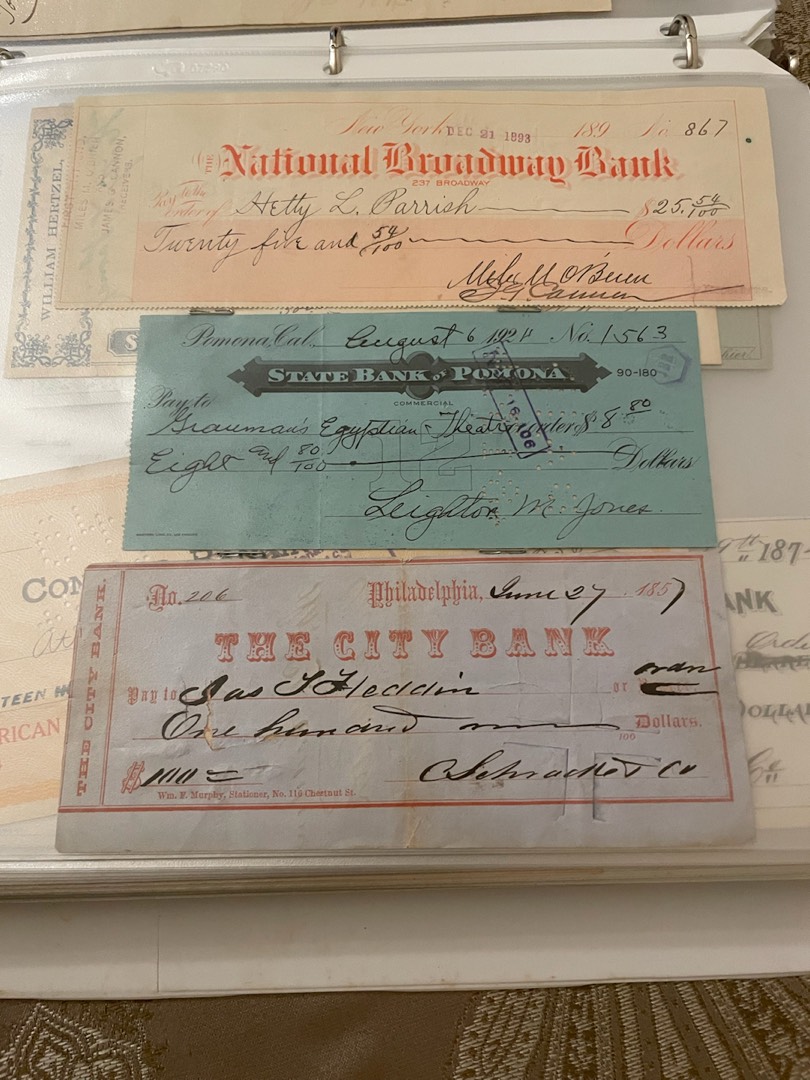 New York DEC 21 1893 189 No. 867
THE National Broadway Bank
237 BROADWAY
Pay to the
Order of Hetty L. Parrish $25.54/100
Twenty five and 54/100 Dollars
Miles M O'Brien
J G Cannon
WILLIAM HERTZEL,
JAMES G. CANNON,
Pomona, Cal., August 6 1924 No. 1563
STATE BANK OF POMONA 90-180
COMMERCIAL
Pay to
Grauman's Egyptian Theatre or order $8 80
Eight and 80/100 Dollars
Leighton M. Jones.
9th 187
CON
ANK
TEEN
RICAN
DOLLA
THE CITY BANK.
No. 206 Philadelphia, June 27 1857
THE CITY BANK
Pay to Jas T Heddin or
One hundred /100 Dollars.
$100=
Wm. F. Murphy, Stationer, No. 116 Chestnut St.